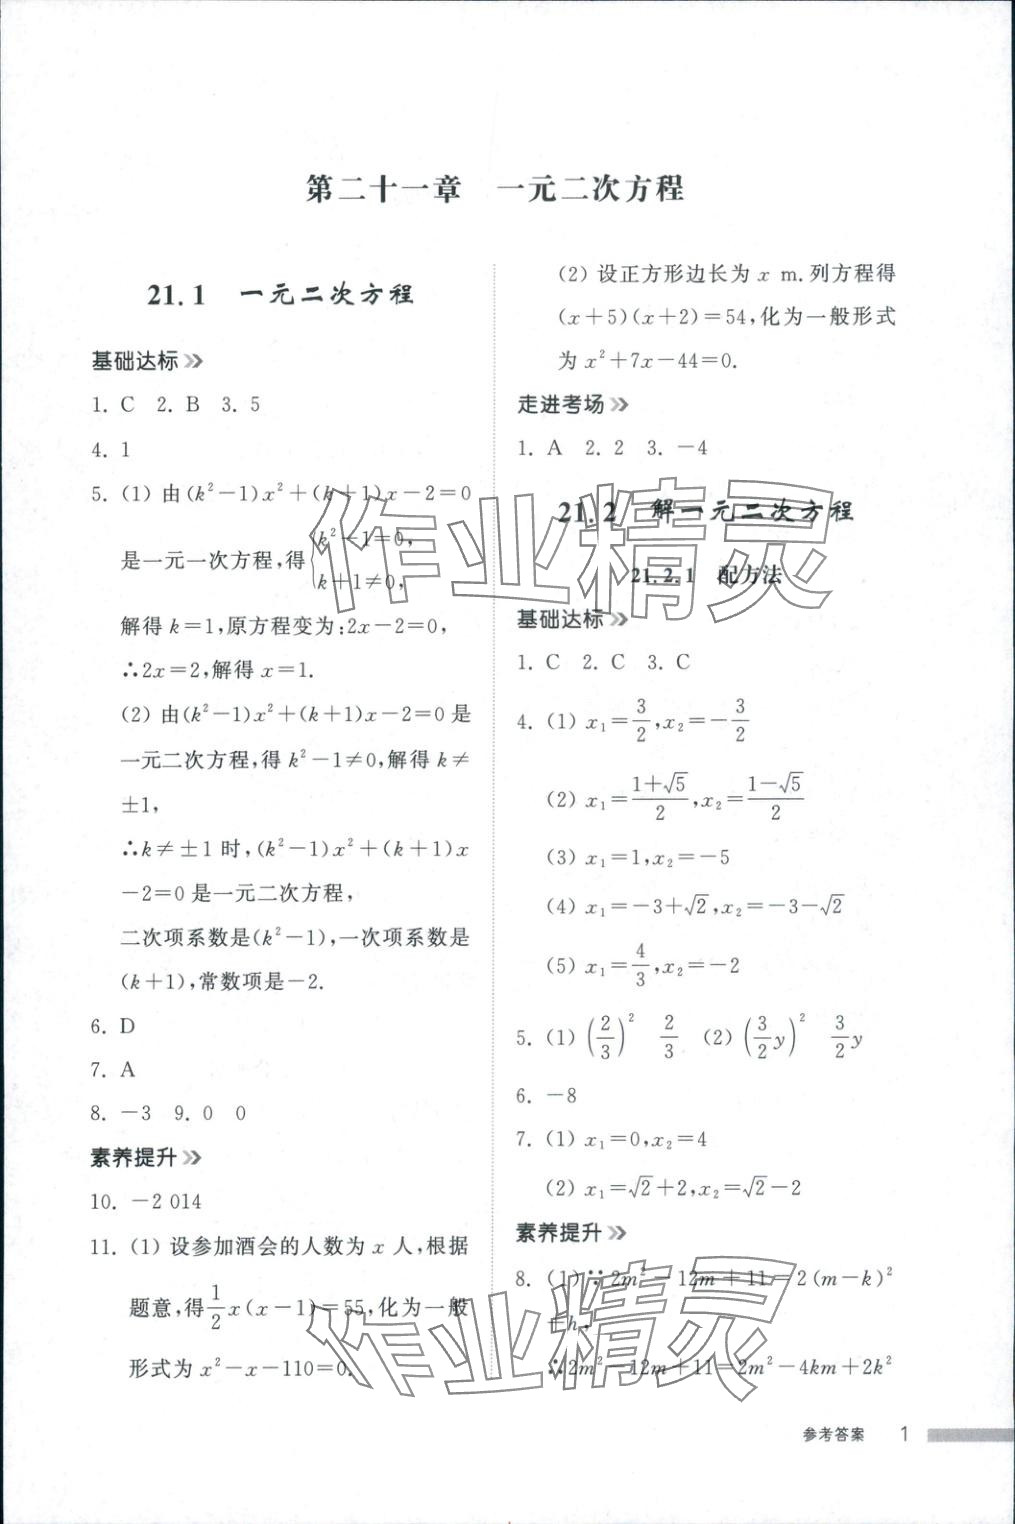 第二十一章 一元二次方程
21.1 一元二次方程
基础达标
1. C 2. B 3. 5
4. 1
5. (1) 由(k²-1)x²+(k+1)x-2=0
是一元一次方程,得{k²-1=0,
k+1≠0,
解得 k=1,原方程变为:2x-2=0,
∴2x=2,解得 x=1.
(2) 由(k²-1)x²+(k+1)x-2=0 是
一元二次方程,得 k²-1≠0,解得 k≠
±1,
∴k≠±1 时,(k²-1)x²+(k+1)x
-2=0 是一元二次方程,
二次项系数是(k²-1),一次项系数是
(k+1),常数项是-2.
6. D
7. A
8. -3 9. 0 0
素养提升
10. -2 014
11. (1) 设参加酒会的人数为 x 人,根据
题意,得1/2x(x-1)=55,化为一般
形式为 x²-x-110=0.
(2) 设正方形边长为 x m.列方程得
(x+5)(x+2)=54,化为一般形式
为 x²+7x-44=0.
走进考场
1. A 2. 2 3. -4
21.2 解一元二次方程
21.2.1 配方法
基础达标
1. C 2. C 3. C
4. (1) x₁=3/2,x₂=-3/2
(2) x₁=(1+√5)/2,x₂=(1-√5)/2
(3) x₁=1,x₂=-5
(4) x₁=-3+√2,x₂=-3-√2
(5) x₁=4/3,x₂=-2
5. (1) (2/3)² 2/3 (2) (3/2y)² 3/2y
6. -8
7. (1) x₁=0,x₂=4
(2) x₁=√2+2,x₂=√2-2
素养提升
8. (1)∵2m²-12m+11=2(m-k)²
+h,
∴2m²-12m+11=2m²-4km+2k²
参考答案 1
作业精灵
作业精灵